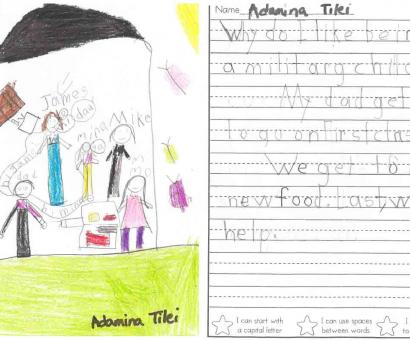 James
dad
Mina
Mike
Adamina Tilei
Name Adamina Tilei
Why do I like bein
a military child
My dad get
to go on first
We get to
new food. Last, w
help.
I can start with
a capital letter
I can use spaces
between words
I
to